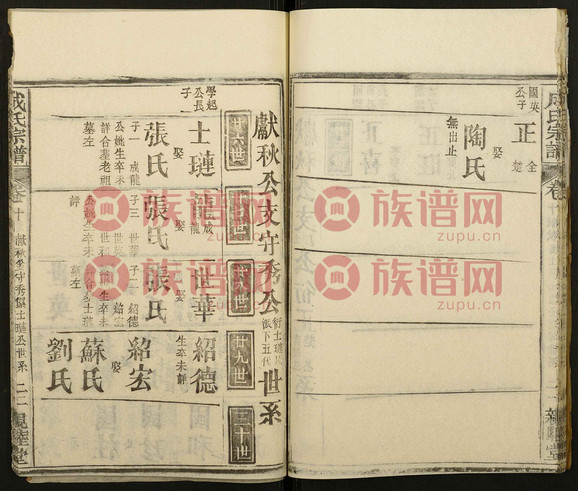 國英公子
正
全
楚
娶
陶氏
無出止
成氏宗譜
卷十
獻秋公支守秀公衍士璉公派下五代世系
廿六世
廿七世
廿八世
廿九世
三十世
學起公長子
士璉
娶
張氏
子一
成龍
公妣生卒未詳合葬老祖墓左
成龍
娶
張氏
子三
世華
公妣生卒未詳
世華
娶
張氏
子二
紹德
紹宏
紹德
生卒未詳
紹宏
娶
蘇氏
劉氏
成氏宗譜
卷十
獻秋公守秀衍士璉公世系
二二
親睦堂
族谱网
zupu.cn
族谱网
zupu.cn
族谱网
zupu.cn
族谱网
zupu.cn